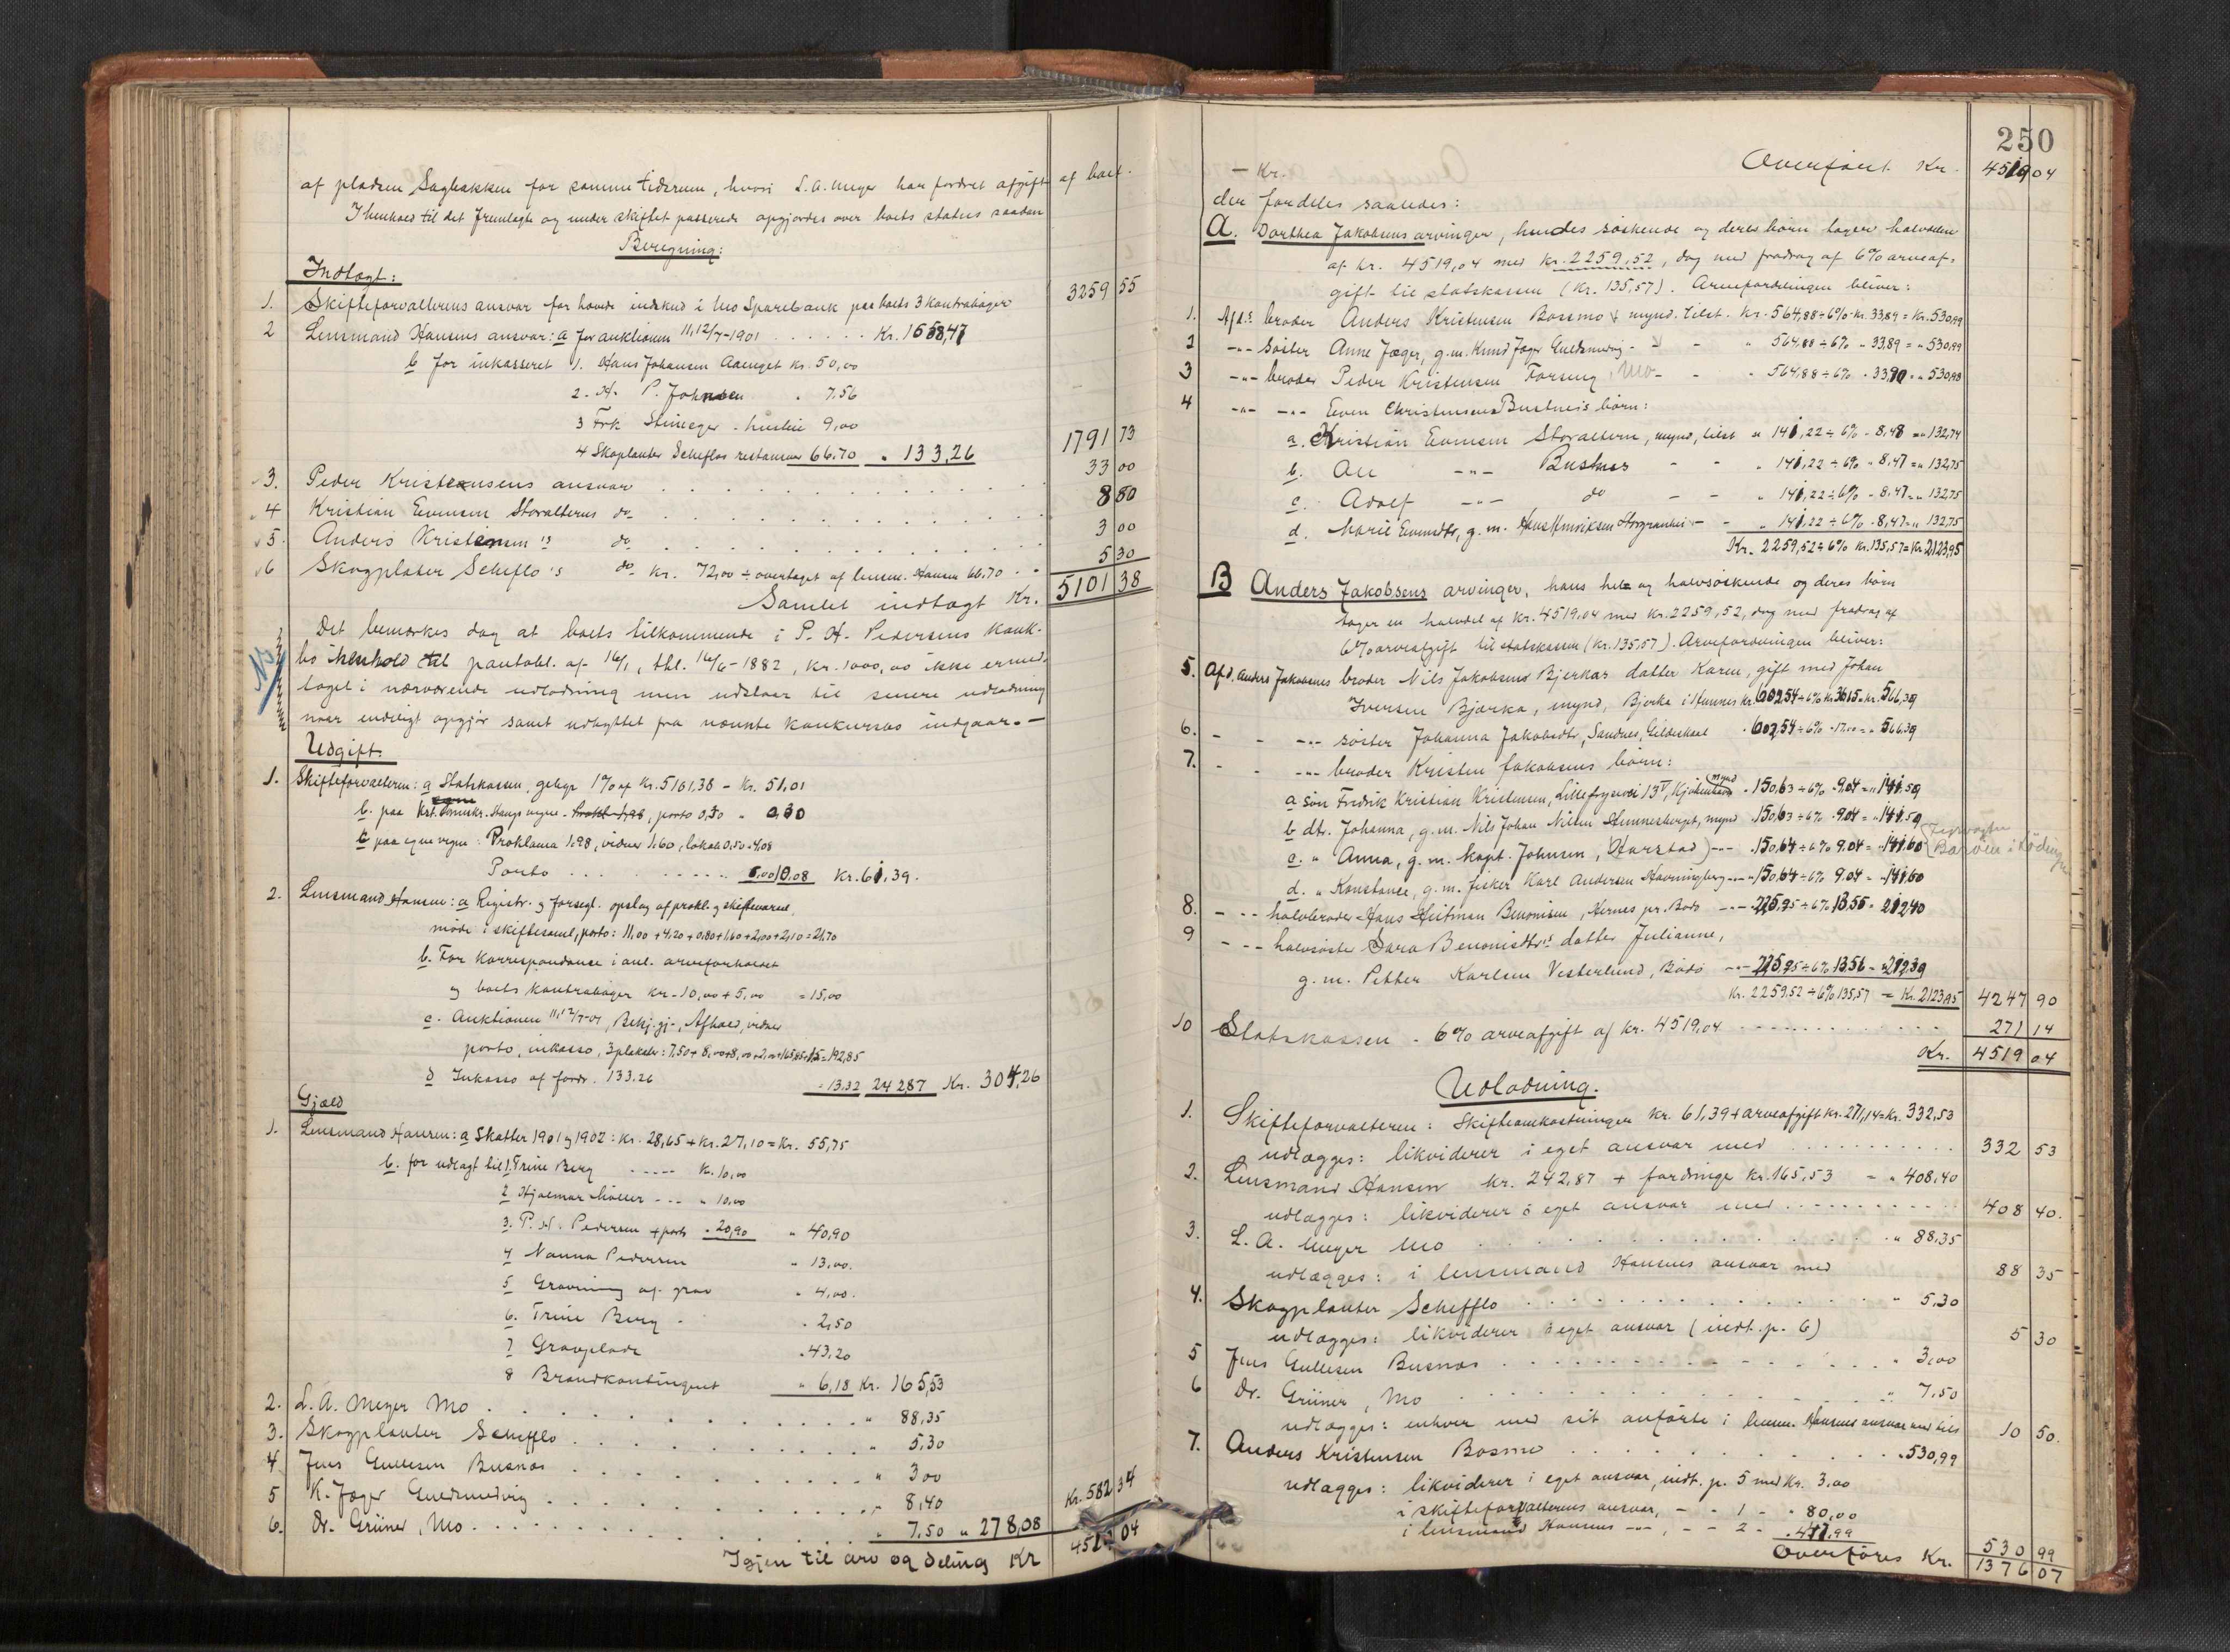 af pladsen Sagbakken for samme tidsrum, hvori L. A. Meyer har fordret afgift af boet.
I henhold til det fremlagte og under skiftet passerede opgjordes over boets status saadan
Beregning:
Indtægt:
1. Skifteforvalterens ansvar for havende indskud i Mo Sparebank paa boets 3 kontrabøger 3259 55
2 Lensmand Hansens ansvar: a for auktionen 11,12/7-1901 . . . . . . Kr. 1658,47
b for inkasseret 1. Hans Johansen Aaenget Kr. 50,00
2. H. P. Johnsen " 7,56
3 Frk Steineger - husleie 9,00
4 Skoplanter Scheflos restancer 66.70 " 133,26 1791 73
3. Peder Kristensens ansvar . . . . 33 00
4 Kristian Evensen Storalterns do . . . . 8 80
5. Anders Kristensen's do . . . . 3 00
6 Skogplanter Scheflo's do Kr. 72,00 ÷ overtaget af lensm. Hansen 66.70 . . 5 30
Samlet indtægt Kr. 5101 38
Det bemærkes dog at boets tilkommende i P. H. Pedersens konk-
NB
bo i henhold til pantobl. af 16/1, thl. 16/6-1882, Kr. 1000,00 ikke er med-
taget i nærværende udlodning men udstaar til senere udlodning
naar endeligt opgjør samt udbyttet fra nævnte konkursbo indgaar. —
Udgift.
1. Skifteforvalteren: a Statskassen, gebyr 1% af Kr. 5101,38 - Kr. 51,01
b. paa vegne - porto 0,30 - 0,30
c paa egne vegne: Proklama 1,98, vidner 1,60, lokale 0,50 = 4,08
Porto . . . . . . . . . 6,00 10,08 Kr. 61,39.
2. Lensmand Hansen: a Registr. og forsegl. opslag af prokl. og skiftevarsel,
møde i skiftesaml, porto: 11,00 + 4,20 + 0,80 + 1,60 + 2,00 + 2,10 = 21,70
b. For korrespondance i anl. arveforholdet
og boets kontrabøger Kr. 10,00 + 5,00 = 15,00
c. Auktionen 11,12/7-01, Bekj. gj., Afhold, vidner
porto, inkasso, 3 plakater: 7,50 + 8,00 + 8,00 + 2,00 + 165,85 + 1,5 = 192,85
d Inkasso af fordr. 133.26 - 13.32 242,87 Kr. 304,26
Gjæld
1. Lensmand Hansen: a Skatter 1901 og 1902: Kr. 28,65 + Kr. 27,10 = Kr. 55,75
b. for udlagt til 1. Trine Berg . . . . . Kr. 10,00
2 Hjalmar Møller - - - " 10,00
3. P. H. Pedersen + porto - 20,90 " 40,90
4 Nanna Pedersen " 13,00.
5 Gravning af grav " 4,00.
6. Trine Berg - " 2,50
7 Gravplade " 43,20
8 Brandkontingent " 6,18 Kr. 165,53
2. L. A. Meyer Mo . . . . " 88,35
3. Skogplanter Schefflo . . . . " 5,30
4 Jens Gullesen Busnæs . . . . " 3,00
5 K. Jæger Guldsmedvig . . . . " 8,40
6. Dr. Grüner, Mo . . . . " 7,50 " 278,08 Kr. 582 34
Igjen til arv og deling Kr 4519 04
250
— Kr. Overført Kr. 4519 04
der fordeles saaledes:
A. Dorthea Jakobsens arvinger, hendes søskende og deres børn tager halvdelen
af kr. 4519,04 med kr. 2259,52, dog med fradrag af 6% arveaf-
gift til statskassen (Kr. 135,57). Arvefordelingen bliver:
1. Afd.s broder Anders Kristensen Bossmo mynd. tilst. Kr. 564,88 ÷ 6% Kr. 33,89 = Kr. 530,99
2 -"- søster Anne Jæger, g. m. Knud Jæger Guldsmedvig - - " 564,88 ÷ 6% " 33,89 = " 530,99
3 -"- broder Peder Kristensen Forseng, Mo - - " 564,88 ÷ 6% " 33,90 = " 530,98
4 -"- -"- Even Christensens Bustneis børn:
a. Kristian Evensen Storaltern, mynd, tilst " 141,22 ÷ 6% - 8,48 = " 132,74
b. Ari -"- Bustnes - - " 141,22 ÷ 6% " 8,47 = " 132,75
c. Adolf -"- do - - " 141,22 ÷ 6% - 8,47 = " 132,75
d. Marie Evensdtr, g. m. Hans Henriksen Storgranhei - - " 141,22 ÷ 6% - 8,47 = " 132,75
Kr. 2259,52 ÷ 6% Kr. 135,57 = Kr. 2123,95
B Anders Jakobsens arvinger, hans hel- og halvsøskende og deres børn
tager en halvdel af Kr. 4519,04 med Kr. 2259,52, dog med fradrag af
6% arveafgift til statskassen (Kr. 135,57). Arvefordelingen bliver:
5. Afd. Anders Jakobsens broder Nils Jakobsens Bjerkas datter Karen, gift med Johan
Iversen Bjærka, mynd, Bjerka i Hemnes Kr. 602,54 ÷ 6% Kr. 36,15 = Kr. 566,39
6. - - -"- søster Johanna Jakobsdtr, Sandnes, Gildeskaal " 602,54 ÷ 6% = " 566,39
7. - - -"- broder Kristen Jakobsens børn:
a søn Fredrik Kristian Kristensen, Lillefrysvei 13 V, Kjøbenhavn mynd - 150,63 ÷ 6% - 9,04 = " 141,59
b dtr. Johanna, g. m. Nils Johan Nilsen Hemnesberget, mynd - 150,63 ÷ 6% - 9,04 = " 141,59
c. " Anna, g. m. kapt. Johnsen, (Harstad) -"- 150,64 ÷ 6% 9.04 = " 141,60 Fyrvogter Barøen i Lödingen
d. " Konstance, g. m. fisker Karl Andersen Havningberg -"- 150,64 ÷ 6% 9.04 = " 141,60
8. - - - halvbroder Hans Heitman Benonisen, Hernes pr. Bodø -"- 225,95 ÷ 6% 13,55 = 212,40
9 - - - halvsøster Sara Benonisdtr's datter Julianne,
g. m. Petter Karlsen Vesterlund, Bodø -"- 225,95 ÷ 6% 13,56 = " 212,39
Kr. 2259,52 ÷ 6% 135,57 = Kr. 2123,95 4247 90
10 Statskassen - 6% arveafgift af kr. 4519,04 . . . . 271 14
Kr. 4519 04
Udlodning.
1. Skifteforvalteren: Skifteomkostninger Kr. 61,39 + arveafgift kr. 271,14 = Kr. 332,53
udlægges: likviderer i eget ansvar med . . . . 332 53
2. Lensmand Hansen kr. 242,87 + fordringe kr. 165,53 = " 408,40
udlægges: likviderer i eget ansvar med . . . . 408 40.
3. L. A. Meyer Mo . . . . " 88,35
udlægges: i lensmand Hansens ansvar med 88 35
4. Skogplanter Schefflo . . . . " 5,30
udlægges: likviderer i eget ansvar (indt. p. 6) 5 30
5 Jens Gullesen Busnæs . . . . " 3,00
6 Dr. Grüner, Mo . . . . " 7,50
udlægges: enhver med sit anførte i lensm. Hansens ansvar med tils 10 50.
7. Anders Kristensen Bosmo . . . . " 530,99
udlægges: likviderer i eget ansvar, indt. p. 5 med Kr. 3,00
i skifteforvalterens ansvar, - - 1 - " 80,00
i lensmand Hansens -"-, - - 2 - " 447,99 530 99
Overføres Kr. 1376 07